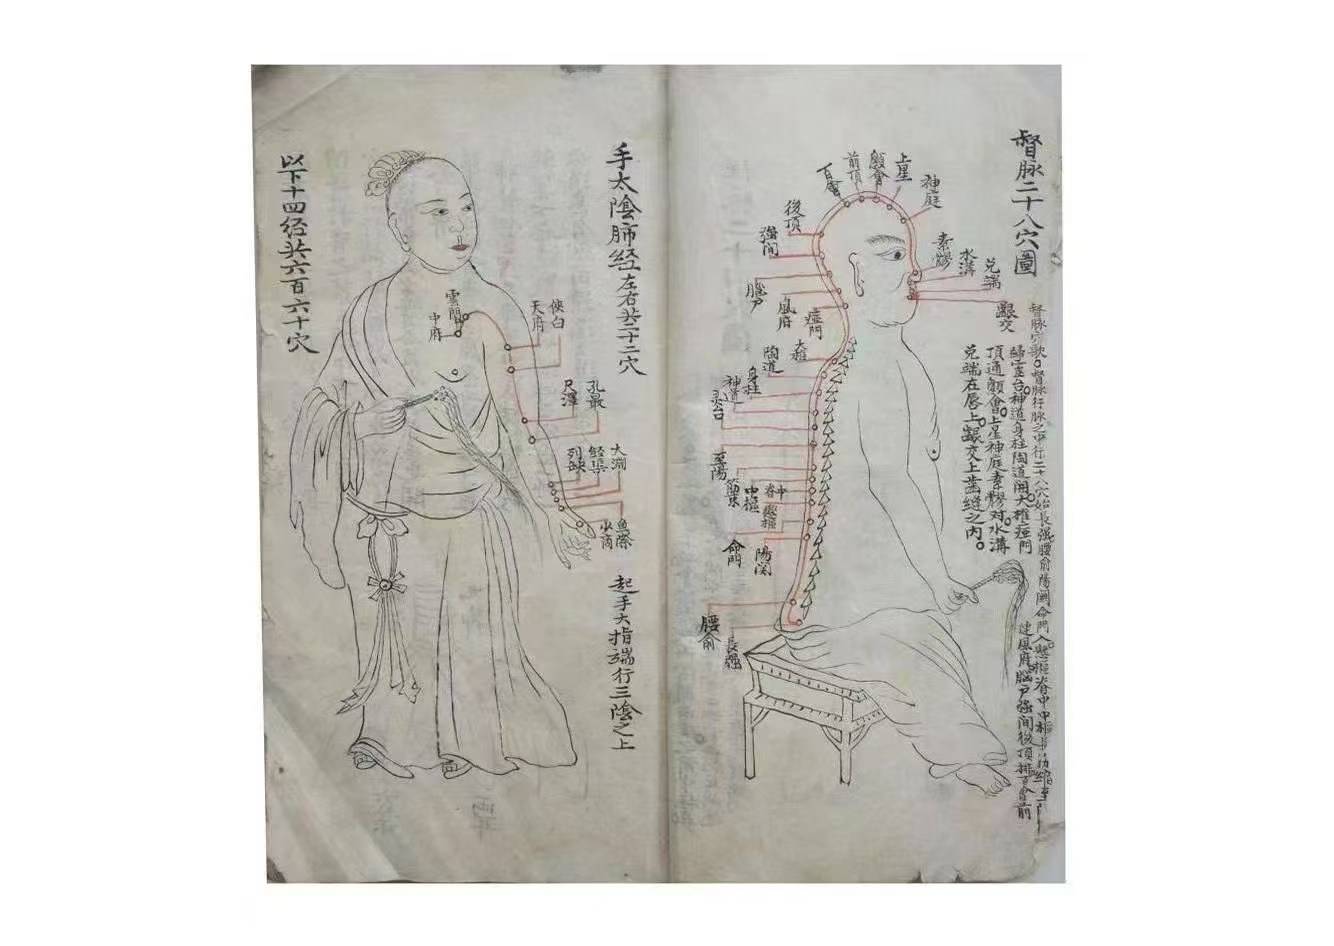 督脉二十八穴圖
督脉穴歌。督脉行脉之中行二十八穴始長强腰俞陽関命門。懸樞脊中中樞
歸至台。神道身柱陶道開大椎瘂門
頂通顖會。上星神庭素髎对。水溝
兌端在唇上。齦交上齒縫之内。
建風府腦戶强間後頂排百會前
神庭
上星
顖會
前頂
百會
後頂
强间
腦戶
風府
瘂門
大椎
陶道
身柱
神道
灵台
至陽
筋束
中樞
脊中
懸樞
命門
陽関
腰俞
長强
素髎
水溝
兌端
齦交
手太陰肺经左右共二十二穴
起手大指端行三陰之上
雲門
中府
天府
俠白
尺澤
孔最
列缺
經渠
大淵
魚際
少商
以下十四经共六百六十穴